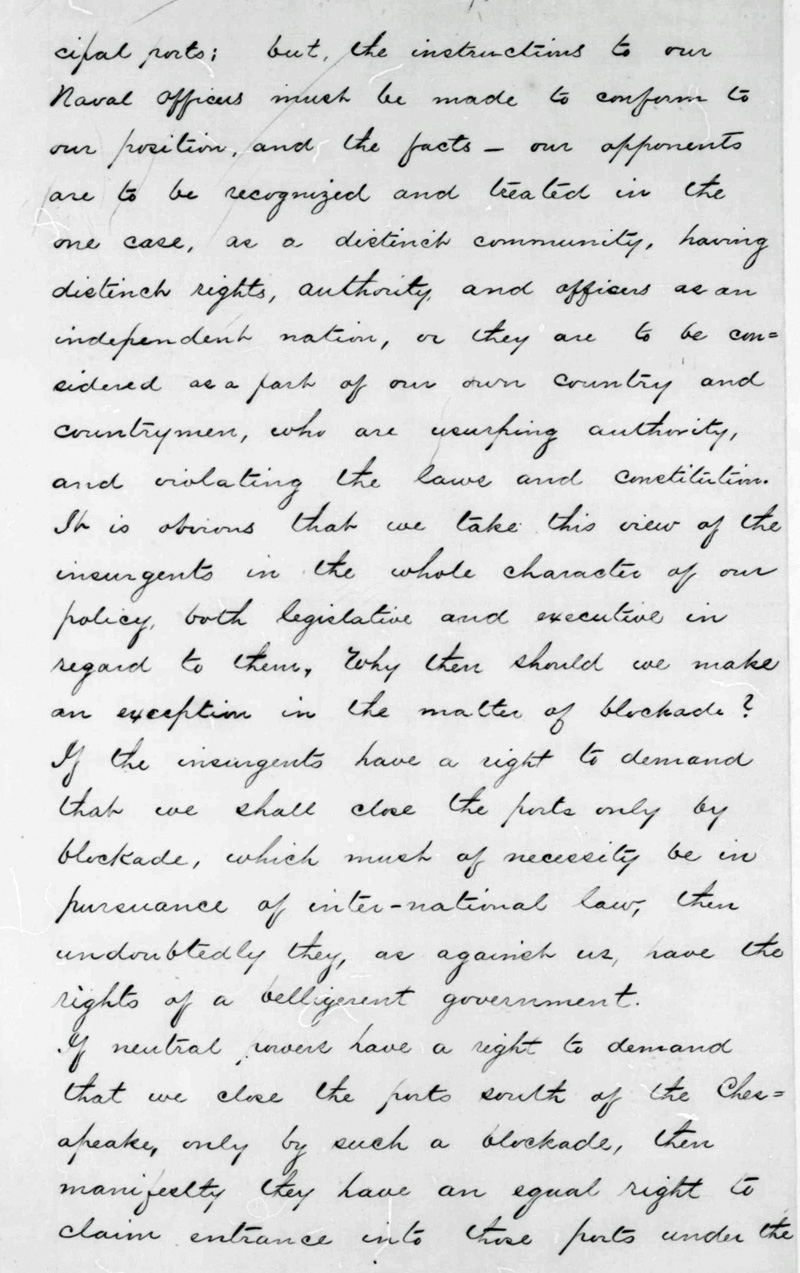 cipal ports; but, the instructions to our
Naval Officers must be made to conform to
our position, and the facts — our opponents
are to be recognized and treated in the
one case, as a distinct community, having
distinct rights, authority and officers as an
independent nation, or they are to be con=
sidered as a part of our own country and
countrymen, who are usurping authority,
and violating the laws and constitution.
It is obvious that we take this view of the
insurgents in the whole character of our
policy, both legislative and executive in
regard to them, Why then should we make
an exception in the matter of blockade?
If the insurgents have a right to demand
that we shall close the ports only by
blockade, which must of necessity be in
pursuance of inter-national law, then
undoubtedly they, as against us, have the
rights of a belligerent government.
If neutral powers have a right to demand
that we close the ports south of the Ches=
apeake, only by such a blockade, then
manifestly they have an equal right to
claim entrance into those ports under the